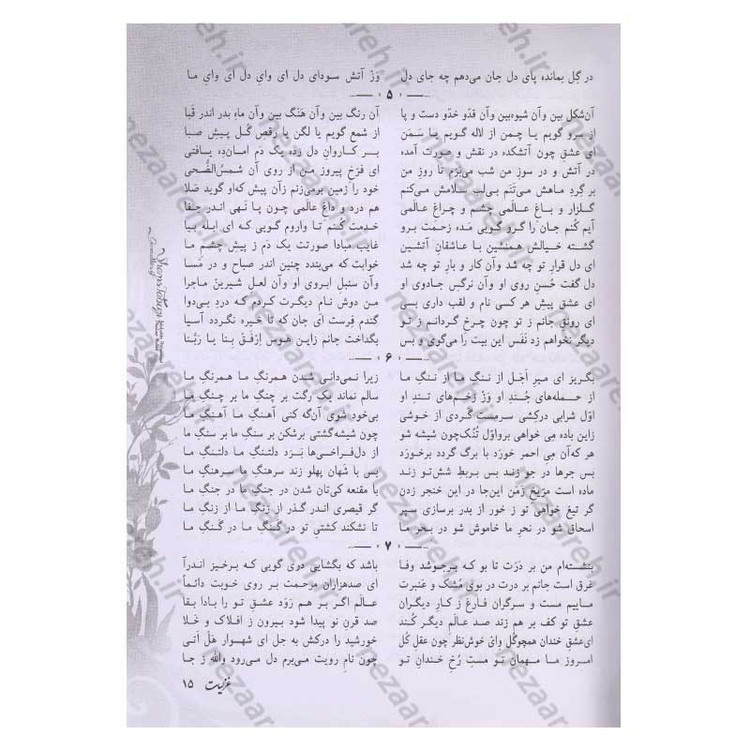 در گِل بمانده پای دل جان می‌دهم چه جای دل وَز آتش سودای دل ای وایِ دل ای وایِ ما
۵
آن‌شکل بین وآن شیوه‌بین وآن قدّو خدّو دست و پا آن رنگ بین وآن هَنگ بین وآن ماهِ بدر اندر قَبا
از سرو گویم یا چمن از لاله گویم یا سَمَن از شمع گویم یا لگن یا رقصِ گُل پیشِ صَبا
ای عشقِ چون آتشکده در نقش و صورت آمده بر کاروانِ دل زده یک دَم امان‌ده یافتی
در آتش و در سوزِ من شب می‌بَرَم تا روزِ من ای فَرّخِ پیروزِ من از روی آن شمسُ‌الضُّحی
بر گِردِ ماهش می‌تَنَم بی‌لب سلامش می‌کنم خود را زمین برمی‌زنم زآن پیش کاو گوید صَلا
گلزار و باغِ عالَمی چشم و چراغِ عالَمی هم درد و داغِ عالَمی چون پا نَهی اندر جَفا
آیم کُنم جان را گرو گویی مَده زحمت برو خدمت کُنم تا واروم گویی که ای ابله بیا
گشته خیالش همنشین با عاشقانِ آتشین غایب مبادا صورتت یک دَم ز پیشِ چشمِ ما
ای دل قرارِ تو چه شد وآن کار و بارِ تو چه شد خوابت که می‌بندد چنین اندر صباح و در مَسا
دل گفت حُسنِ روی او وآن نرگسِ جادوی او وآن سنبلِ ابروی او وآن لعلِ شیرینْ ماجرا
ای عشق پیشِ هر کسی نام و لقب داری بسی من دوش نام دیگرت کردم که دردِ بی‌دوا
ای رونقِ جانم ز تو چون چرخ گردانم ز تو گندم فِرست ای جان که تا خیره نگردد آسیا
دیگر نخواهم زد نَفَس این بیت را می‌گوی و بس بگداخت جانم زاین هوس اِرْفَق بِنا یا رَبَّنا
۶
بگریز ای میرِ اَجَل از ننگِ ما از ننگِ ما زیرا نمی‌دانی شدن همرنگِ ما همرنگِ ما
از حمله‌های جُندِ او وَز زخم‌های تندِ او سالم نماند یک رگت بر چنگِ ما بر چنگِ ما
اوّل شرابی درکِشی سرمست گردی از خوشی بی‌خود شوی آن‌گه کنی آهنگِ ما آهنگِ ما
زاین باده می خواهی برواوّل تُنُک‌چون شیشه شو چون شیشه‌گشتی برشکن بر سنگِ ما بر سنگِ ما
هر که‌آن میِ احمر خورَد با برگ گردد برخورَد از دل‌فراخی‌ها بَرَد دلتنگِ ما دلتنگِ ما
بس جرها در جو زند بس بربط شش‌تو زند بس با شَهان پهلو زند سرهنگِ ما سرهنگِ ما
ماده است مریخِ زَمَن این‌جا در این خنجر زدن با مقنعه کی‌تان شدن در جنگِ ما در جنگِ ما
گر تیغ خواهی تو ز خور از بدر برسازی سپر گر قیصری اندر گذر از زنگِ ما از زنگِ ما
اسحاق شو در نحرِ ما خاموش شو در بحر ما تا نشکند کشتیِ تو در گَنگِ ما در گَنگِ ما
۷
بنشسته‌ام من بر دَرَت تا بو که برجوشد وفا باشد که بگشایی دری گویی که برخیز اندرآ
غرق است جانم بر درت در بوی مُشک و عنبرت ای صدهزاران مرحمت بر روی خوبت دائماً
ماییم مست و سرگران فارغ ز کارِ دیگران عالَم اگر بر هم رَوَد عشقِ تو را بادا بقا
عشقِ تو کف بر هم زند صد عالَمِ دیگر کُند صد قرنِ نو پیدا شود بیرون ز افلاک و خَلا
ای‌عشقِ خندان همچوگُل وای خوش‌نظر چون عقلِ کُل خورشید را درکش به جل ای شهسوارِ هَلْ اَتیٰ
امروز ما مهمانِ تو مستِ رُخِ خندانِ تو چون نامِ رویت می‌برم دل می‌رود والله ز جا
غزلیات ۱۵